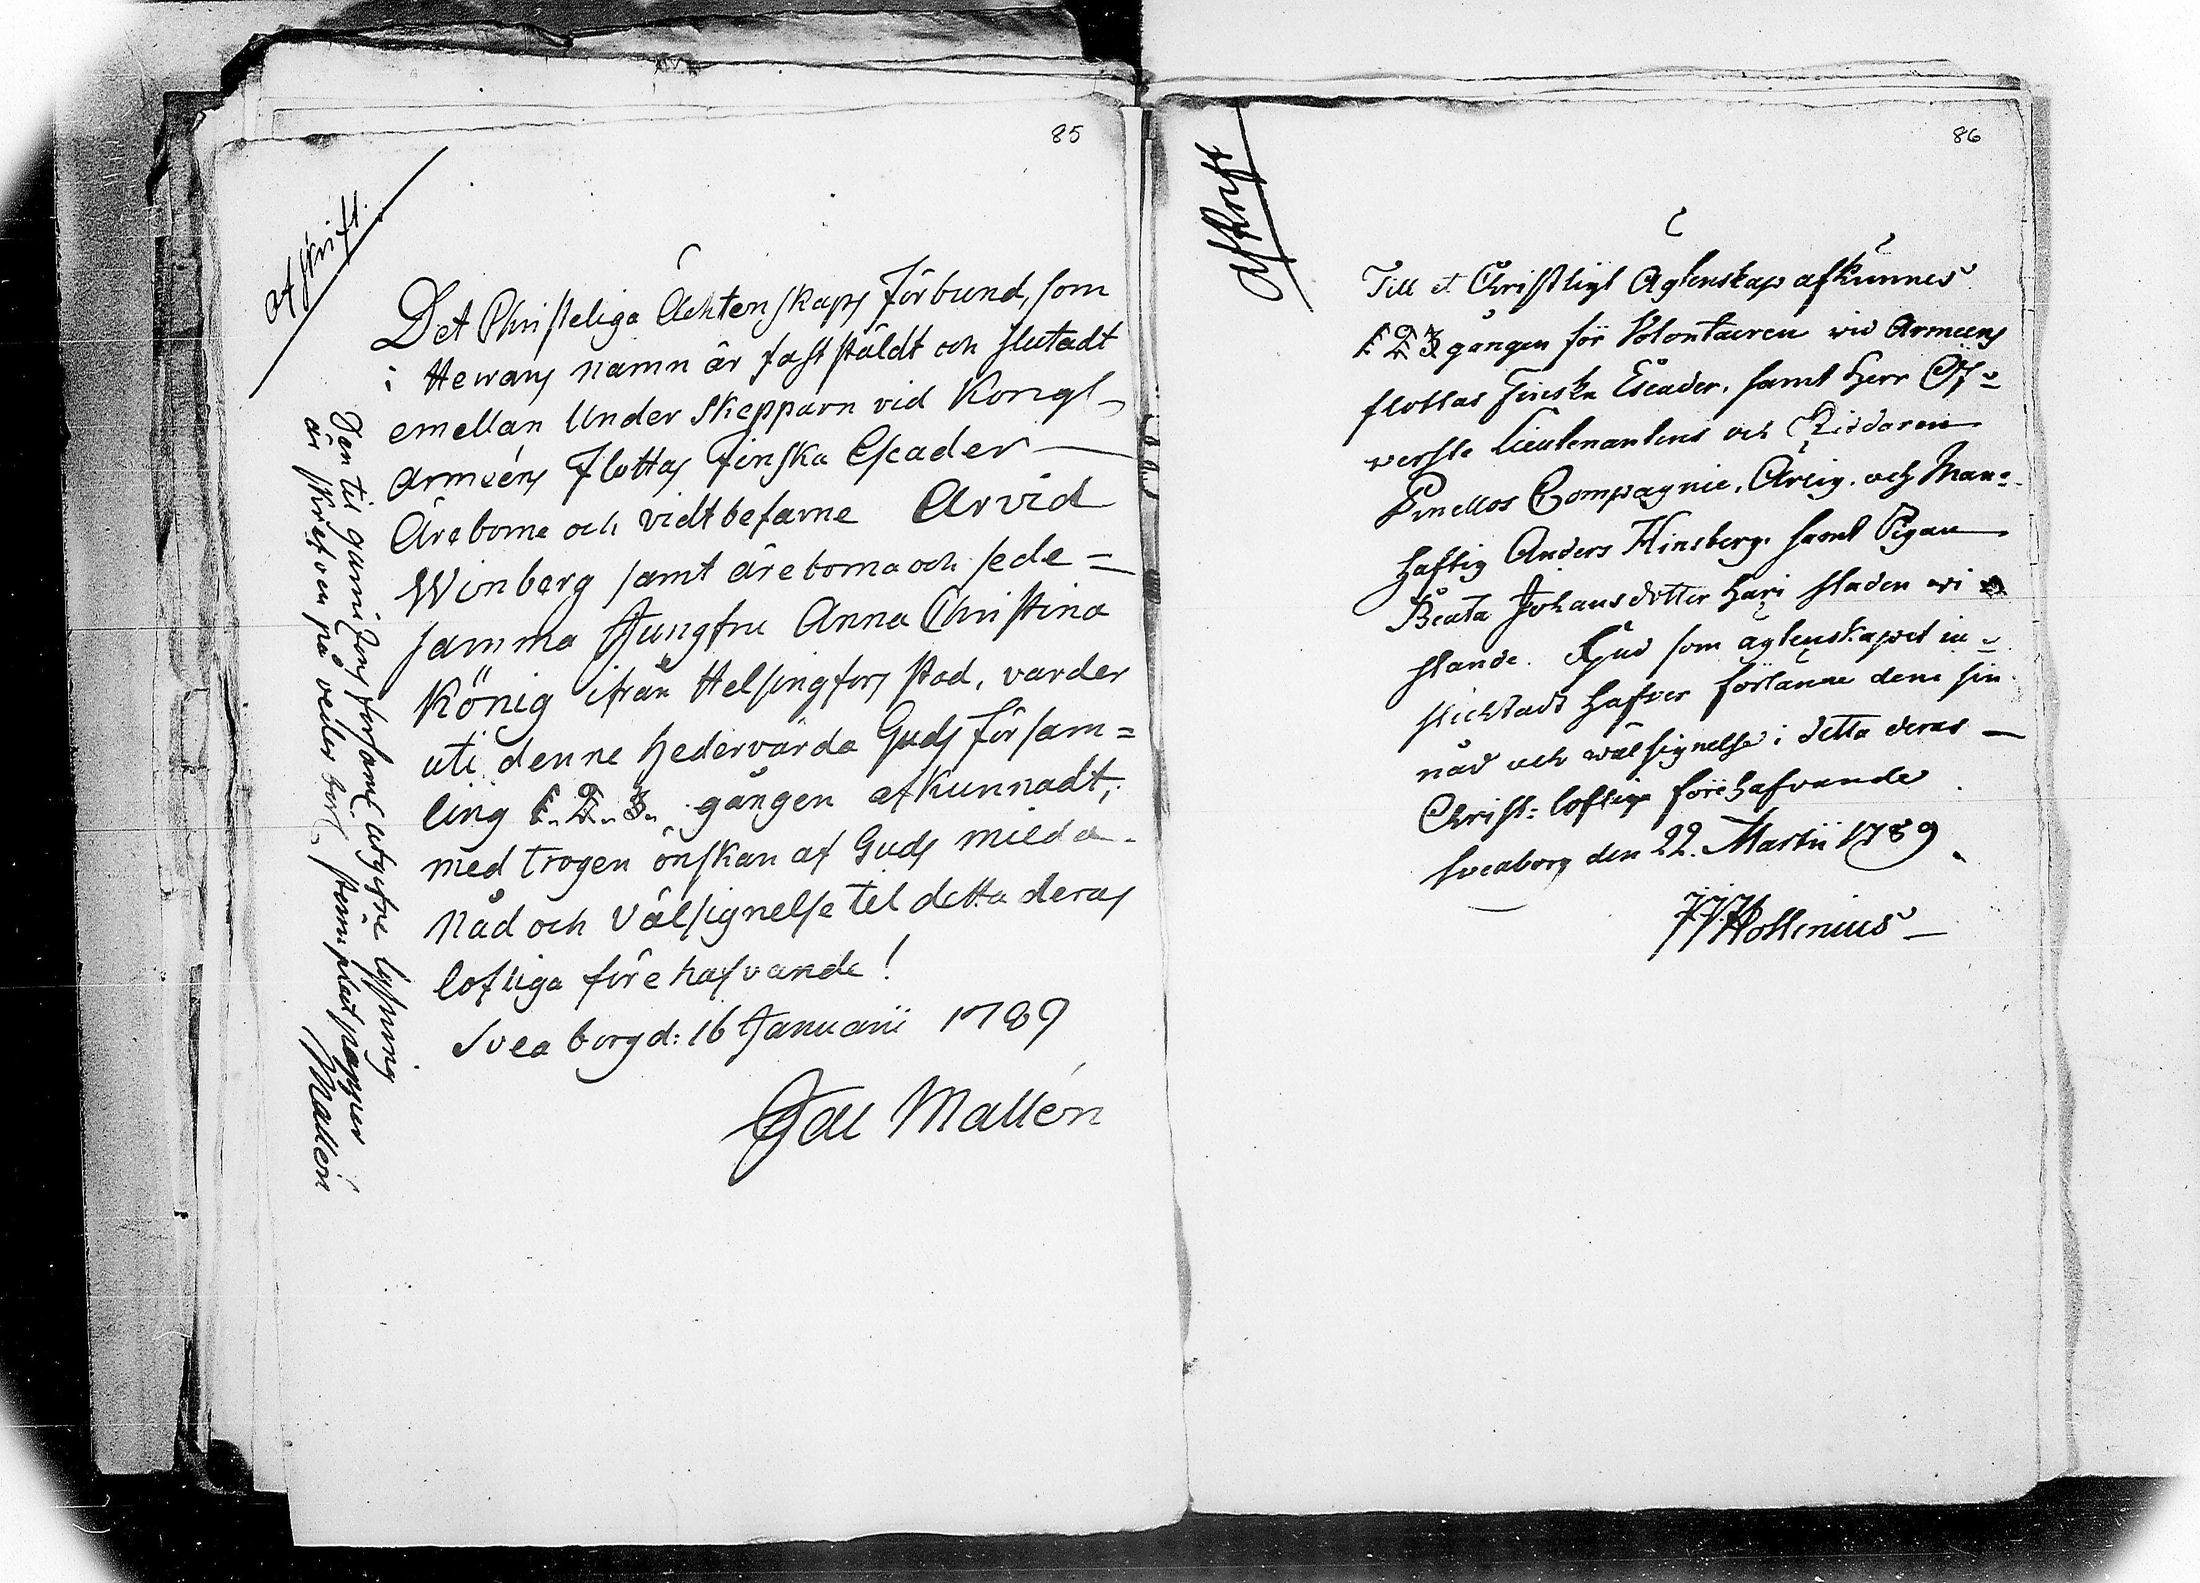 85
Afskrift.
Det Christeliga Ächtenskaps Förbund, som
i Herrans namn är fastståldt och slutadt
emellan Under Skepparn vid Kongl-
Arméens Flottas Finska Escader
Äreborne och vidtbefarne Arvid
Winberg samt äreborna och sede=
samma Jungfru Anna Christina
König ifrån Helsingfors stad, varder
uti denne hedervärda Guds Försam=
ling 1. 2. 3. gången afkunnadt,
med trogen önskan af Guds milda
Nåd och Välsignelse til detta deras
lofliga förehafvande!
Sveaborg d: 16 Januarii 1789
Mallén
Den til garnizons forsaml utgifne lysning
är skrefven på veder börl. stemplat papper
Mallén
86
Afskrift
Till et Christligt Ägtenskap afkunnes
1 2 3 gången för Volontairen wid Armeens
flottas Finska Escader, samt Herr Öf=
verste Lieutenantens och Riddaren
Pinellos Compagnie, Ärlig. och Man=
haftig Anders Hinsberg. samt Pigan
Beata Johansdotter häri staden wi
stande. Gud som ägtenskapet in=
stichtadt hafver förlänne dem sin
nåd och wälsignelse i detta deras
Christ: lofliga förehafvande
Sveaborg den 22. Martii 1789